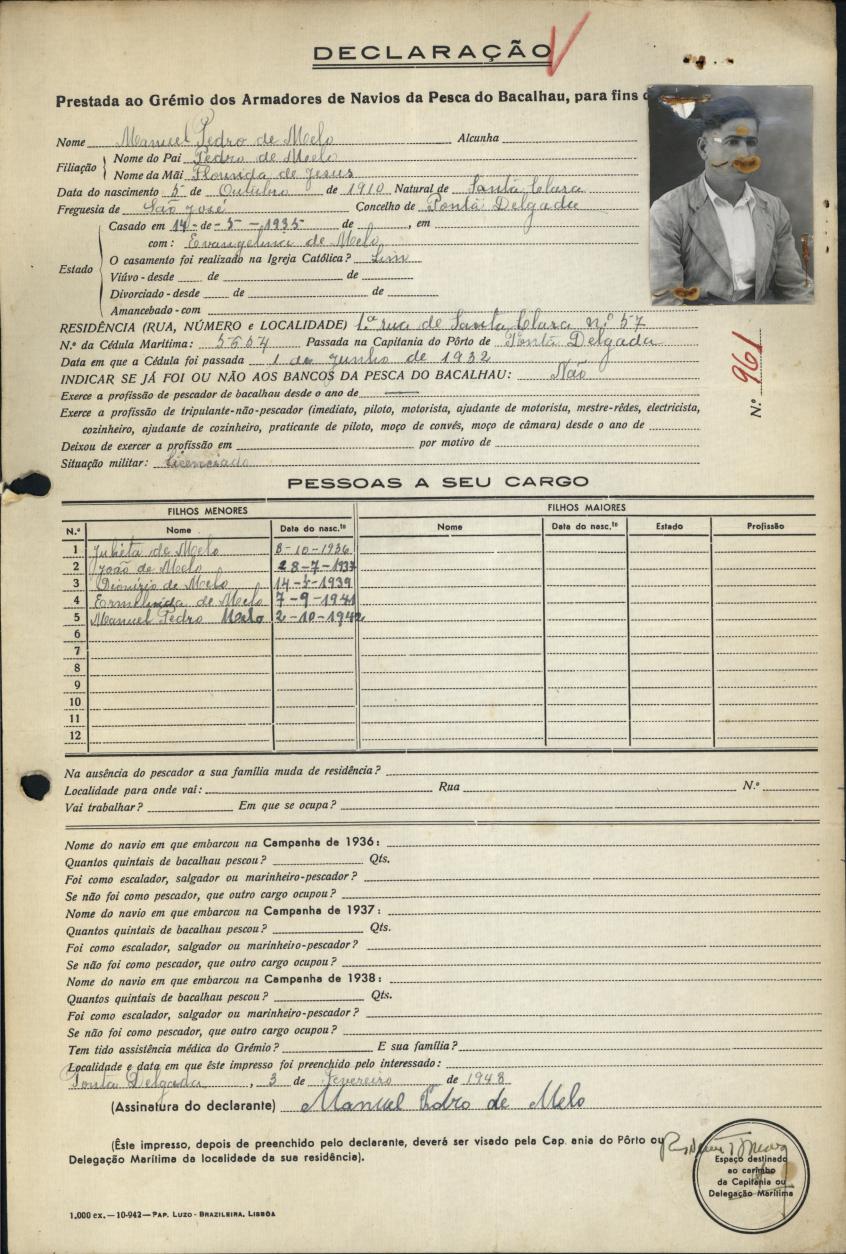 DECLARAÇÃO
Prestada ao Grémio dos Armadores de Navios da Pesca do Bacalhau, para fins
Nome Manuel Pedro de Melo Alcunha
Filiação
Nome do Pai Pedro de Melo
Nome da Mãi Florinda de Jesus
Data do nascimento 5 de Outubro de 1910 Natural de Santa Clara
Freguesia de São José Concelho de Ponta Delgada
Estado
Casado em 14 de 5 1935 de , em
com: Evangelina de Melo
O casamento foi realizado na Igreja Católica? Sim
Viúvo - desde de de
Divorciado - desde de de
Amancebado - com
RESIDÊNCIA (RUA, NÚMERO e LOCALIDADE) 1.ª rua de Santa Clara n.º 57
N.º da Cédula Marítima: 5654 Passada na Capitania do Pôrto de Ponta Delgada
Data em que a Cédula foi passada 1 de Junho de 1932
INDICAR SE JÁ FOI OU NÃO AOS BANCOS DA PESCA DO BACALHAU: Não
Exerce a profissão de pescador de bacalhau desde o ano de —
Exerce a profissão de tripulante-não-pescador (imediato, piloto, motorista, ajudante de motorista, mestre-rêdes, electricista,
cozinheiro, ajudante de cozinheiro, praticante de piloto, moço de convés, moço de câmara) desde o ano de
Deixou de exercer a profissão em por motivo de
Situação militar: licenciado
N.º 961
PESSOAS A SEU CARGO
FILHOS MENORES FILHOS MAIORES
N.º Nome Data do nasc.to Nome Data do nasc.to Estado Profissão
1 Julieta de Melo 3-10-1936
2 João de Melo 28-7-1937
3 Dionízio de Melo 14-5-1939
4 Ermelinda de Melo 7-9-1941
5 Manuel Pedro Melo 2-10-1942
6
7
8
9
10
11
12
Na ausência do pescador a sua família muda de residência?
Localidade para onde vai: Rua N.º
Vai trabalhar? Em que se ocupa?
Nome do navio em que embarcou na Campanha de 1936:
Quantos quintais de bacalhau pescou? Qts.
Foi como escalador, salgador ou marinheiro-pescador?
Se não foi como pescador, que outro cargo ocupou?
Nome do navio em que embarcou na Campanha de 1937:
Quantos quintais de bacalhau pescou? Qts.
Foi como escalador, salgador ou marinheiro-pescador?
Se não foi como pescador, que outro cargo ocupou?
Nome do navio em que embarcou na Campanha de 1938:
Quantos quintais de bacalhau pescou? Qts.
Foi como escalador, salgador ou marinheiro-pescador?
Se não foi como pescador, que outro cargo ocupou?
Tem tido assistência médica do Grémio? E sua família?
Localidade e data em que êste impresso foi preenchido pelo interessado:
Ponta Delgada, 3 de fevereiro de 1948
(Assinatura do declarante) Manuel Pedro de Melo
(Êste impresso, depois de preenchido pelo declarante, deverá ser visado pela Cap. ania do Pôrto ou
Delegação Marítima da localidade da sua residência).
Espaço destinado
ao carimbo
da Capitania ou
Delegação Marítima
1.000 ex. — 10-942 — PAP. LUZO-BRAZILEIRA, LISBÔA